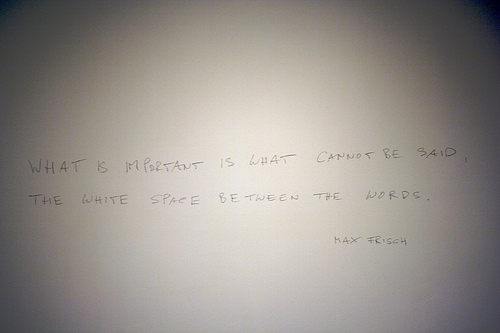 WHAT IS IMPORTANT IS WHAT CANNOT BE SAID,
THE WHITE SPACE BETWEEN THE WORDS.
MAX FRISCH